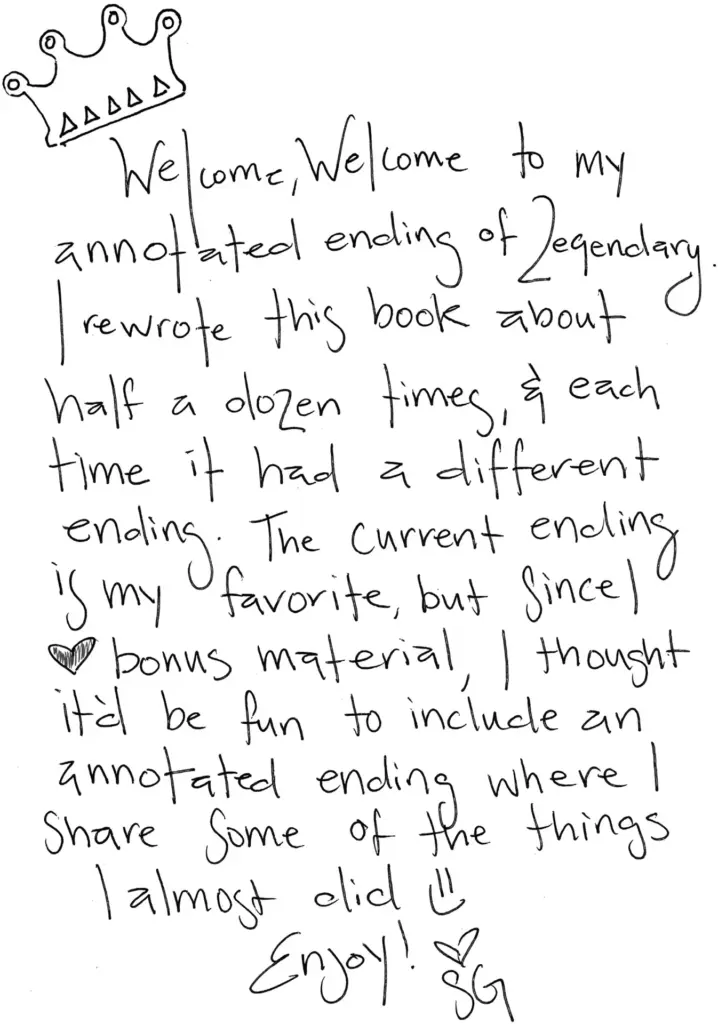 Welcome, Welcome to my
annotated ending of Legendary.
I rewrote this book about
half a dozen times, & each
time it had a different
ending. The current ending
is my favorite, but since I
♥ bonus material, I thought
it'd be fun to include an
annotated ending where I
share some of the things
I almost did :)
Enjoy! ♡
SG